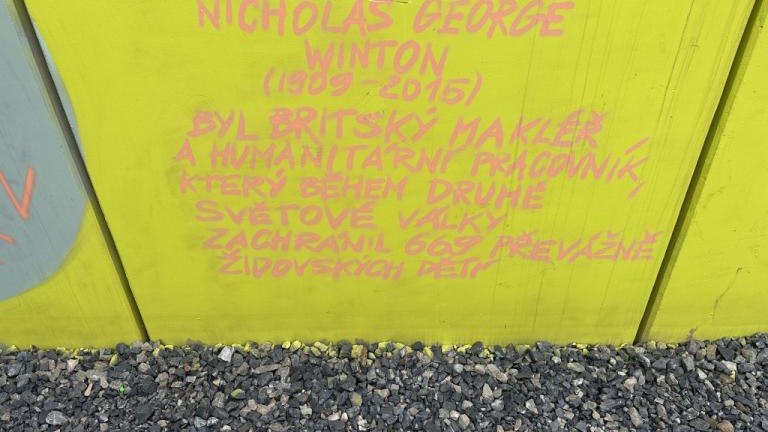 NICHOLAS GEORGE
WINTON
(1909-2015)
BYL BRITSKÝ MAKLÉŘ
A HUMANITÁRNÍ PRACOVNÍK,
KTERÝ BĚHEM DRUHÉ
SVĚTOVÉ VÁLKY
ZACHRÁNIL 669 PŘEVÁŽNĚ
ŽIDOVSKÝCH DĚTÍ